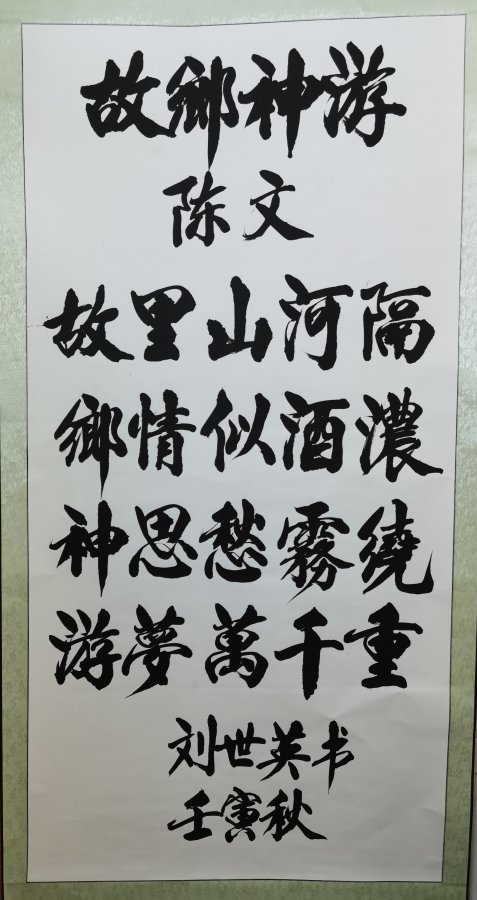 故鄉神游
陈文
故里山河隔
鄉情似酒濃
神思愁霧繞
游夢萬千重
刘世英书
壬寅秋